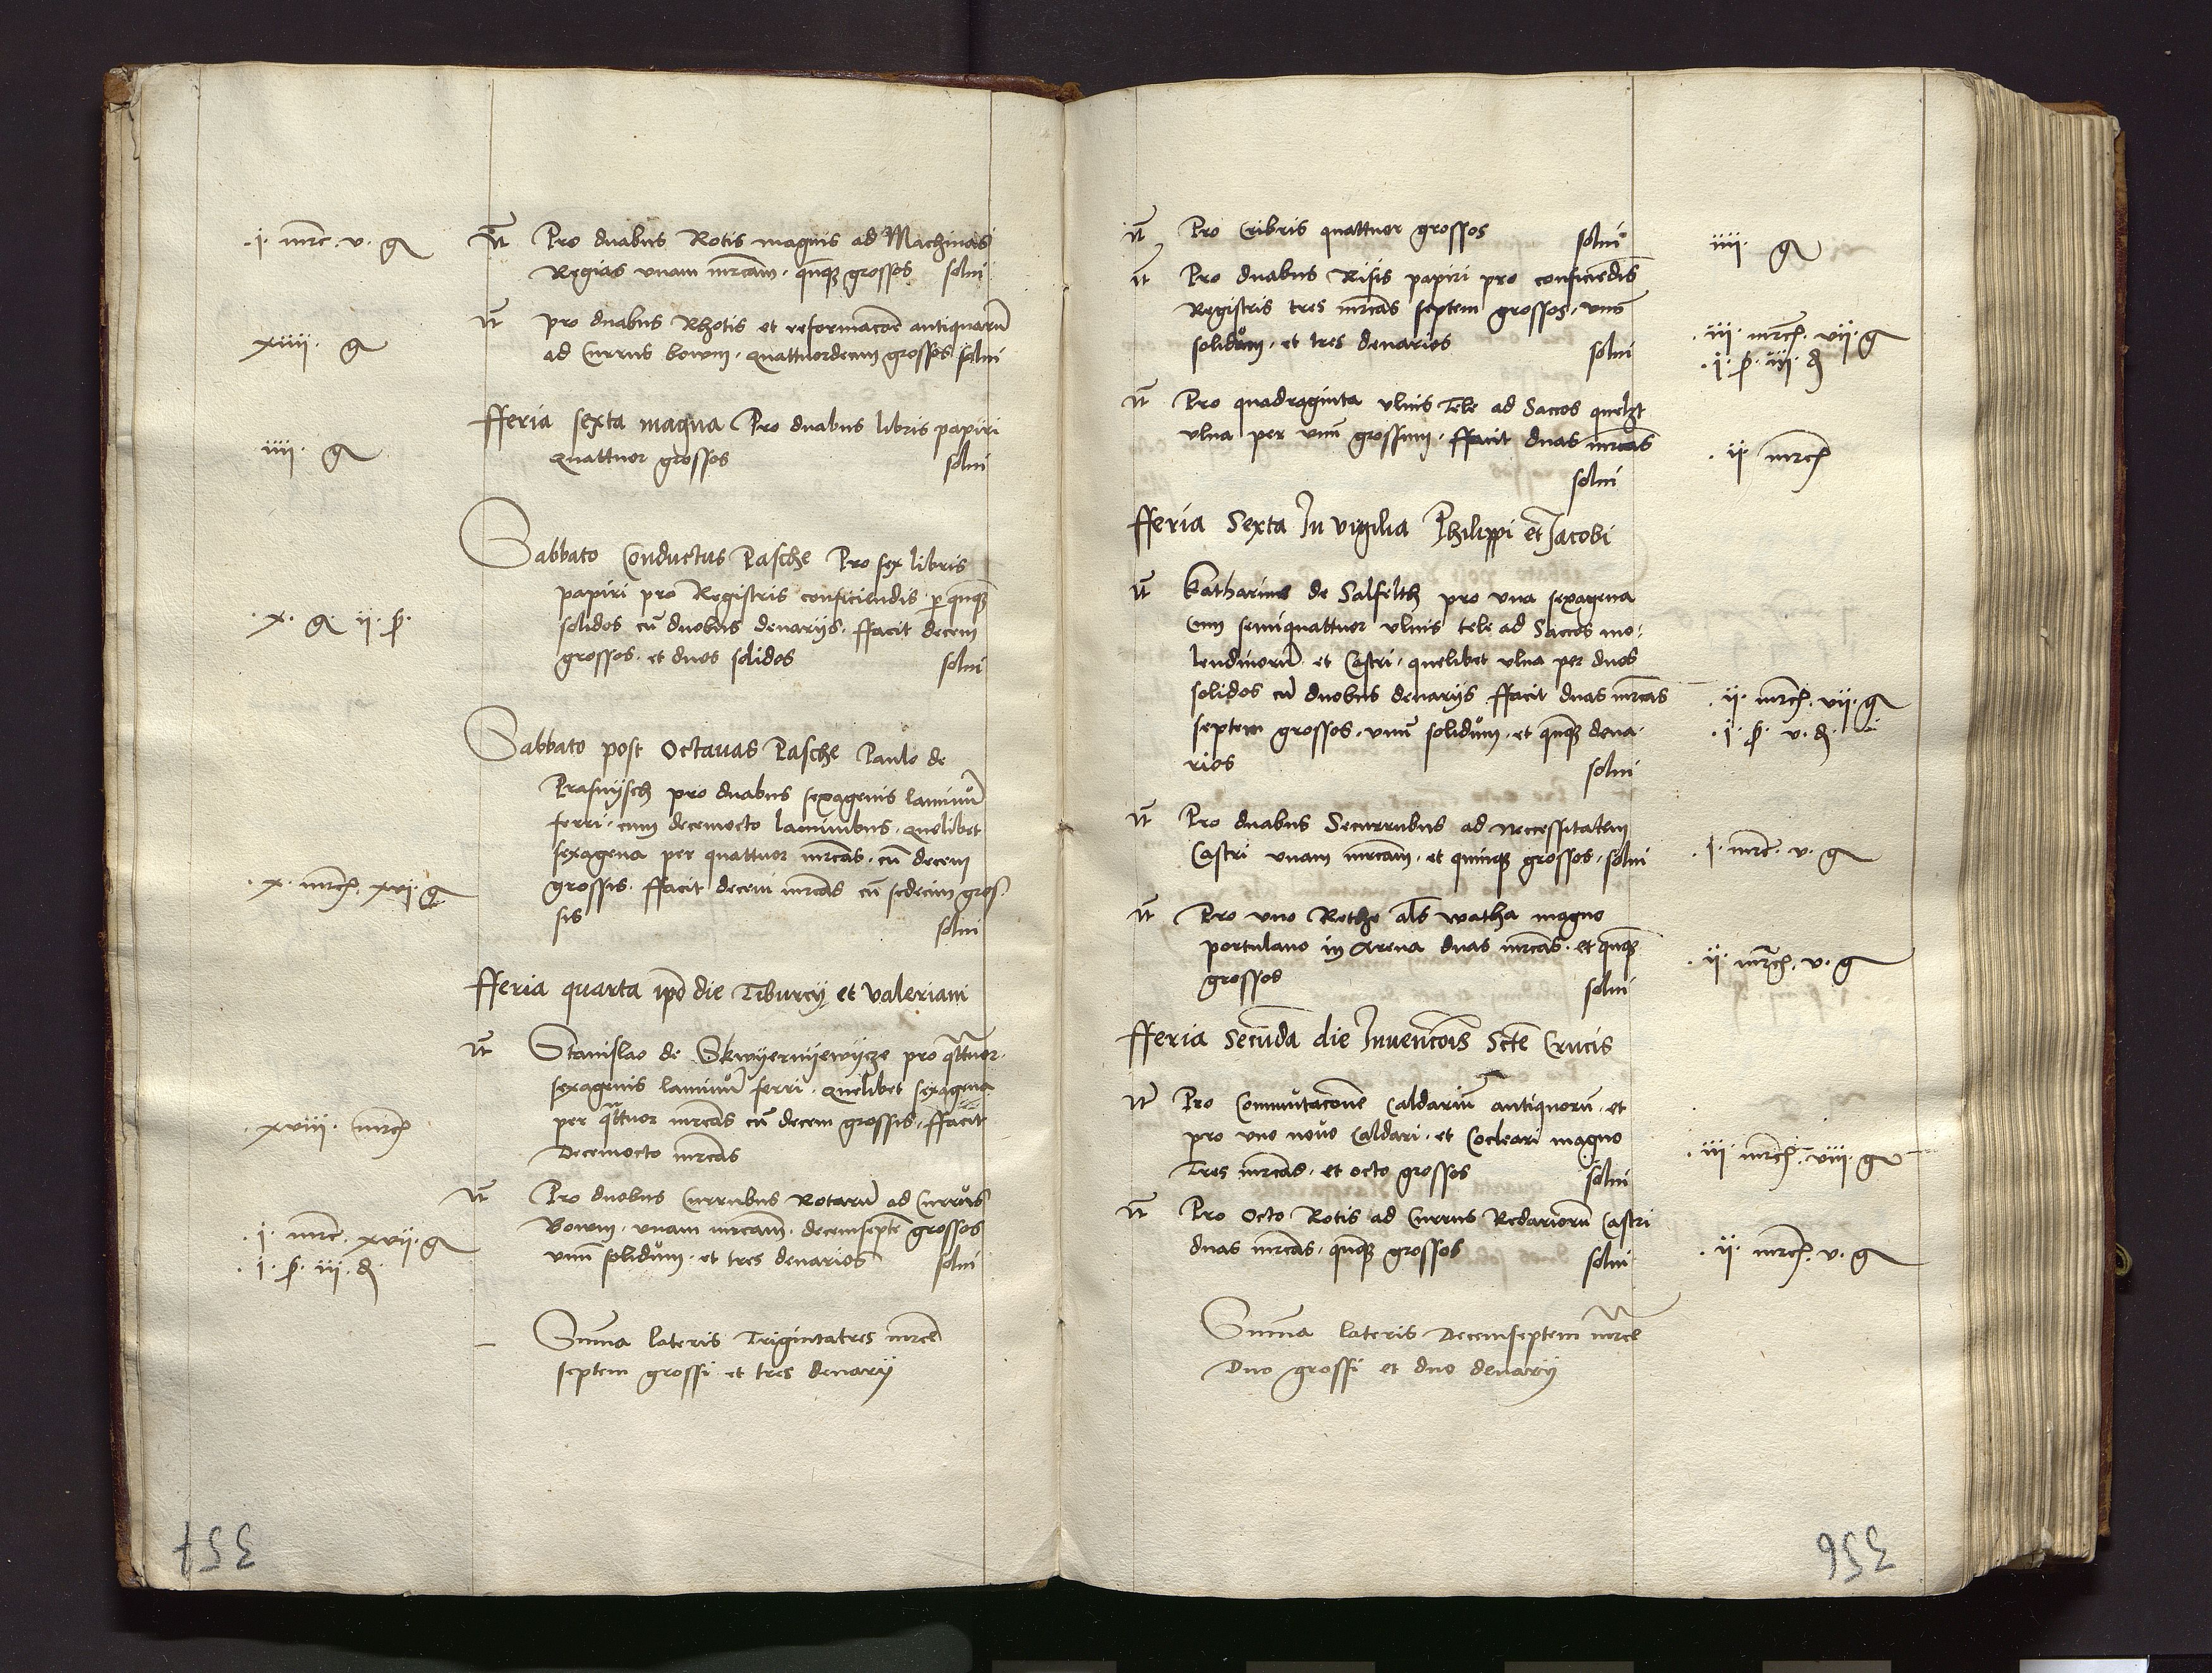 ·j· mrc· v· g
It Pro duabus Rotis magnis ad Machinas
Regias vnam mrcam· quinqz grossos solui
xiiii· g
It pro duabus Rhotis et reformacoe antiquarum
ad Currus boum· quattuordecim grossos solui
fferia sexta magna Pro duabus libris papiri
iiii· g
Quattuor grossos solui
Sabbato Conductus Pasche Pro sex libris
papiri pro Registris conficiendis per quinqz
·x· g· ij· ꝑ·
solidos cu duobus denarijs· ffacit decem
grossos· et duos solidos solui
Sabbato post Octauas Pasche Paulo de
Prasnijsch pro duabus sexagenis laminum
ferri· cum decemocto laminibus· Quelibet
sexagena per quattuor mrcas· cu decem
·x· mrch· xvj· g
grossis· ffacit decem mrcas cu sedecim gros
sis solui
fferia quarta ipo die Tiburcij et valeriani
It Stanislao de Skwijernijewijcze pro qttuor·
sexagenis laminum ferri· Quelibet sexagena
·xviii· mrch
per qttuor mrcas cu decem grossis· ffacit
Decemocto mrcas
It Pro duobus Curribus Rotarum ad Currus
·j· mrc· xvij· g
Boum· vnam mrcam· decemsepte grossos
·j· ꝑ· iii· d·
vnu solidum· et tres denarios solui
Suma lateris Trigintatres mrce
septem grossi et tres denarij
357
It Pro Cribris quattuor grossos solui
iiii· g
It Pro duabus Risis papiri pro conficiedis
Registris tres mrcas septem grossos· vnu
·iii· mrch· vij· g
solidum· et tres denarios solui
·j· ꝑ· iij· d
It Pro quadraginta vlnis Tele ad Saccos quelzt
vlna per vnu grossum· ffacit duas mrcas
·ij· mrch
solui
fferia Sexta In vigilia Philippi et Jacobi
It Katharine de Salfelth pro vna sexagena
cum semiquattuor vlnis tele ad Saccos mo:
lendinorum· et Castri· quelibet vlna per duos
solidos cu duobus denarijs ffacit duas mrcas
·ij· mrch· vij· g
septem grossos· vnu solidum· et quinqz dena·
·j· ꝑ· v· d·
rios solui
It Pro duabus Securribus ad Neccessitatem
Castri vnam mrcam· et quinqz grossos· solui
·j· mrc· v· g
It Pro vno Rethe als watha magno
portulano in Arena duas mrcas· et quinqz
·ij· mrch· v· g
grossos solui
fferia Secunda die Inuencois Scte Crucis
It Pro Commutacone Caldarium antiquoru· et
pro vno nouo Caldari· et Cocleari magno
·iii· mrch· viii· g
Tres mrcas· et octo grossos solui
It Pro Octo Rotis ad Currus Redariorum Castri
duas mrcas· quinqz grossos solui
·ij· mrch· v· g
Suma lateris Decemseptem mrce
Duo grossi et duo denarij
356